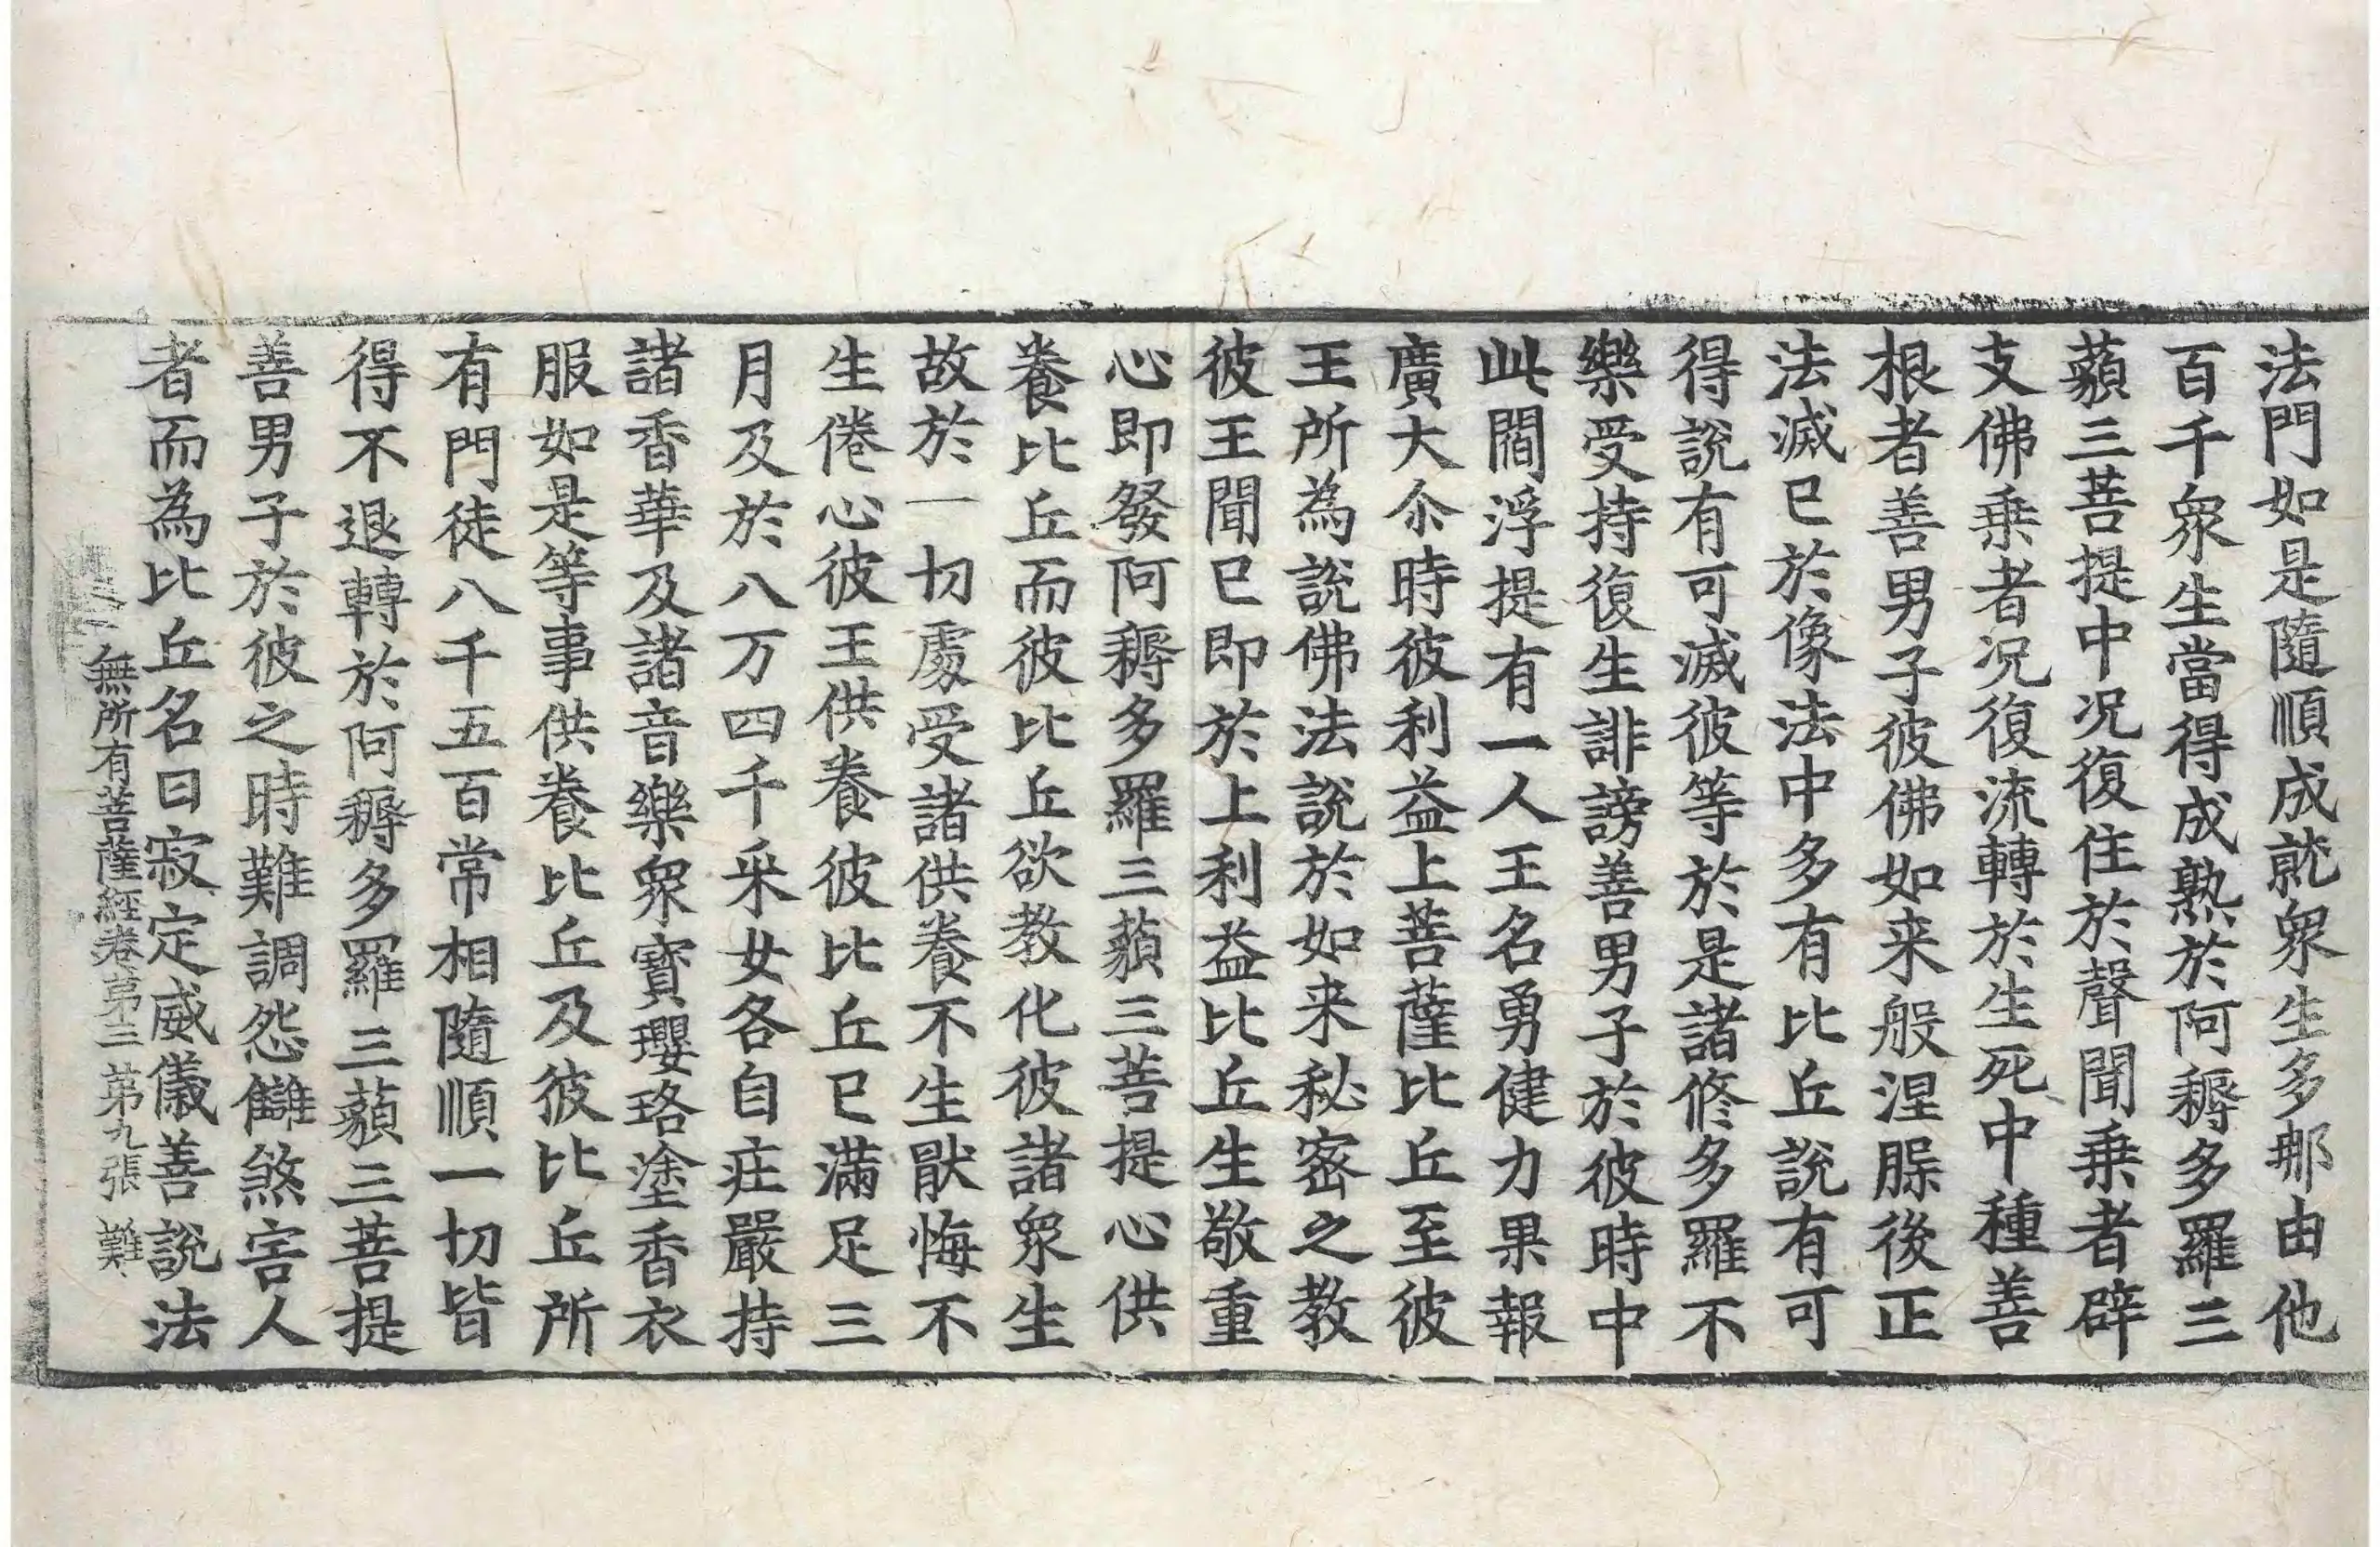 法門如是隨順成就衆生多那由他
百千衆生當得成熟於阿耨多羅三
藐三菩提中况復住於聲聞乗者辟
支佛乗者况復流轉於生死中種善
根者善男子彼佛如来般涅𣵀後正
法滅已於像法中多有比丘說有可
得說有可滅彼等於是諸修多羅不
樂受持復生誹謗善男子於彼時中
此閻浮提有一人王名勇健力果報
廣大尒時彼利益上菩薩比丘至彼
王所為說佛法說於如来秘密之教
彼王聞已即於上利益比丘生敬重
心即發阿耨多羅三藐三菩提心供
養比丘而彼比丘欲教化彼諸衆生
故於一切處受諸供養不生猒悔不
生倦心彼王供養彼比丘已滿足三
月及於八万四千采女各自庄嚴持
諸香華及諸音樂衆寶瓔珞塗香衣
服如是等事供養比丘及彼比丘所
有門徒八千五百常相隨順一切皆
得不退轉於阿耨多羅三藐三菩提
善男子於彼之時難調怨讎煞害人
者而為比丘名曰寂定威儀善說法
無所有菩薩經卷第三 第九張 難